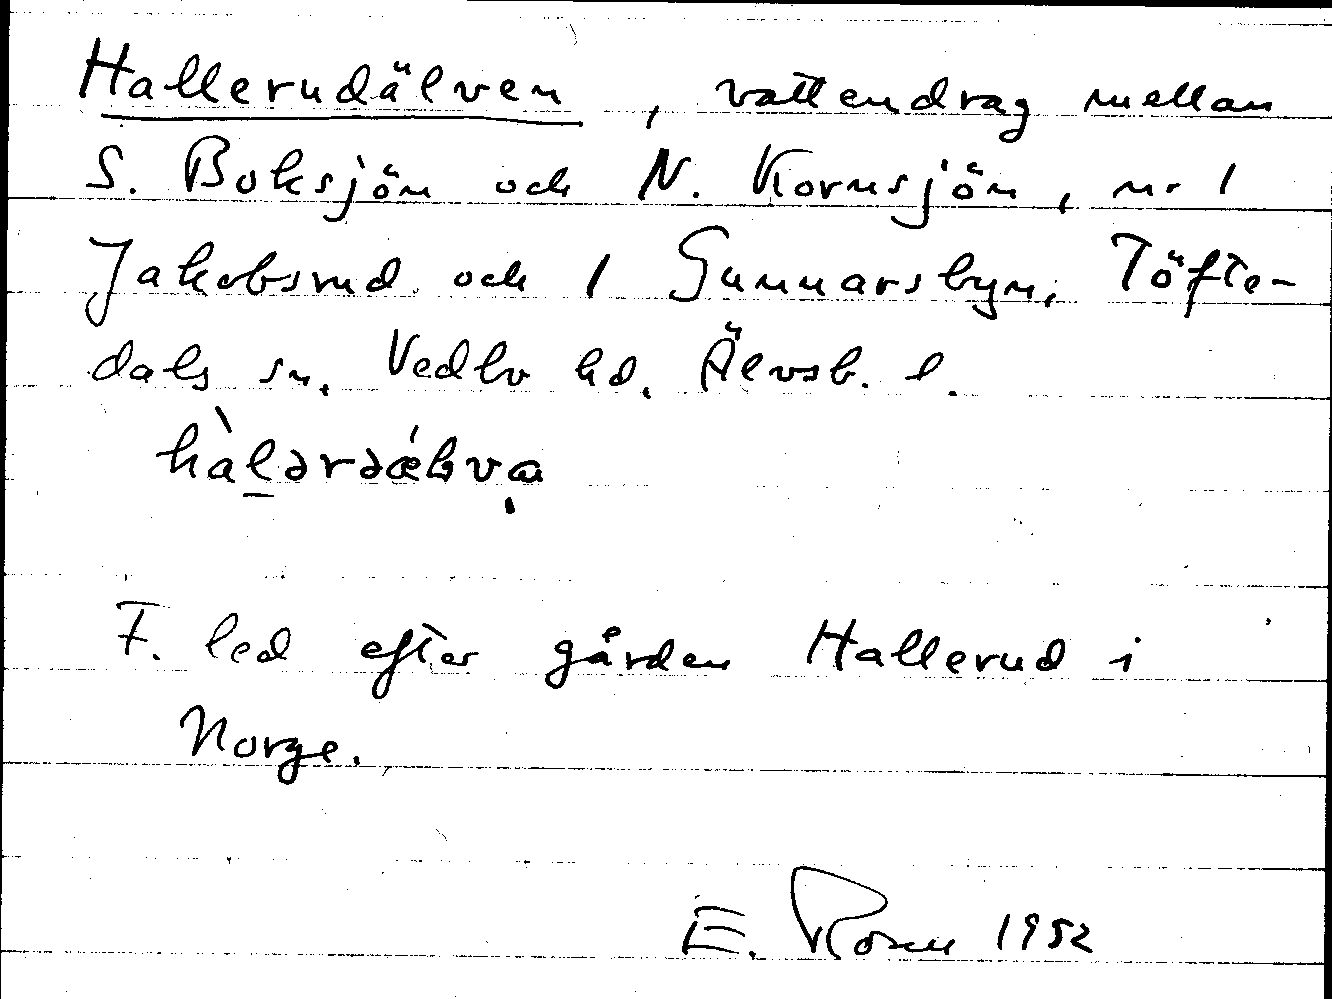 Hallerudälven, vattendrag mellan
S. Boksjön och N. Kornsjön, nr 1
Jakobsrud och 1 Gunnarsbyn, Töfte-
dals sn, Vedbo hd, Älvsb. l.
hàl̠ərəǽlva̩
F. led efter gården Hallerud i
Norge.
E. Rosen 1952